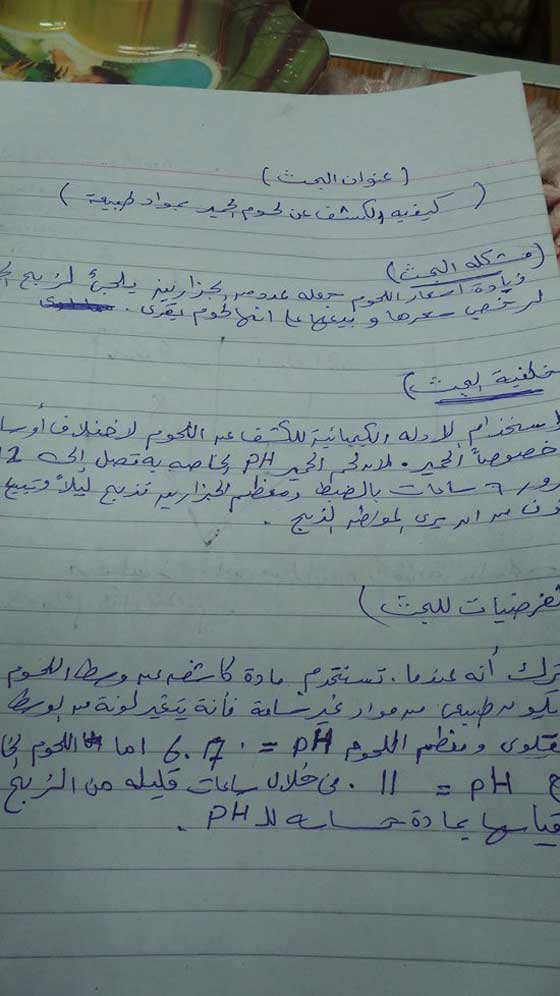 ( عنوان البحث )
( كيفيه الكشف عن لحوم الحمير بمواد طبيعية )
( مشكله البحث )
زيادة أسعار اللحوم جعله عدد من الجزارين يلجئ لذبح
لرخص سعرها و بيعها على انها لحوم بقرى .
خلفية البحث )
استخدام الادله الكيميائية للكشف عن اللحوم لاختلاف أوسا
خصوصاً الحمير . لان لحم الحمير PH الخاصه به تصل إلى 12
رور 6 ساعات بالضبط ومعظم الجزارين تذبح ليلاً وتبيع
من ان يرى المواطن الذبح .
فرضيات للبحث )
ترك أنه عندما . تستخدم مادة كاشفه عن وسط اللحوم
بلون طبيعى من مواد غير سامة فأنة يتغير لونة من الوسط
لقلوى ومعظم اللحوم PH = 6.7 اما اللحوم
PH = 11 . فى خلال ساعات قليله من الذبح
قياسها بمادة حساسه لل PH .